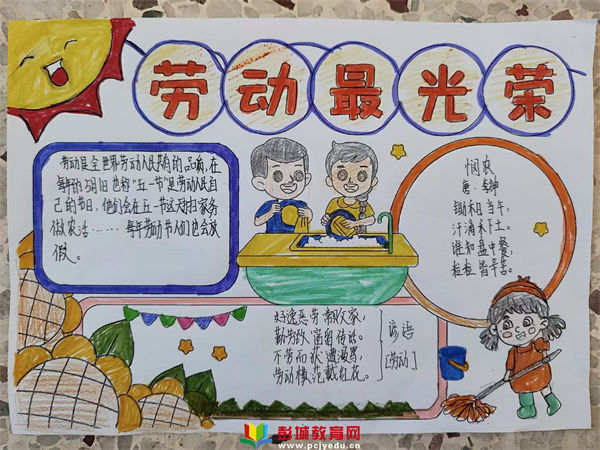 劳动最光荣
劳动是全世界劳动人民共有的品质,在
每年的5月1日也称"五一节"是劳动人民自
己的节日,他们会在五一节这天打扫家务
做农活……每年劳动节人们也会放
假。
悯农
唐 李绅
锄禾日当午,
汗滴禾下土。
谁知盘中餐,
粒粒皆辛苦。
好逸恶劳常败家,
勤劳致富留传话。
不劳而获遭漫骂,
劳动模范戴红花。
谚语
[劳动]
彭城教育网
www.pcjyedu.cn